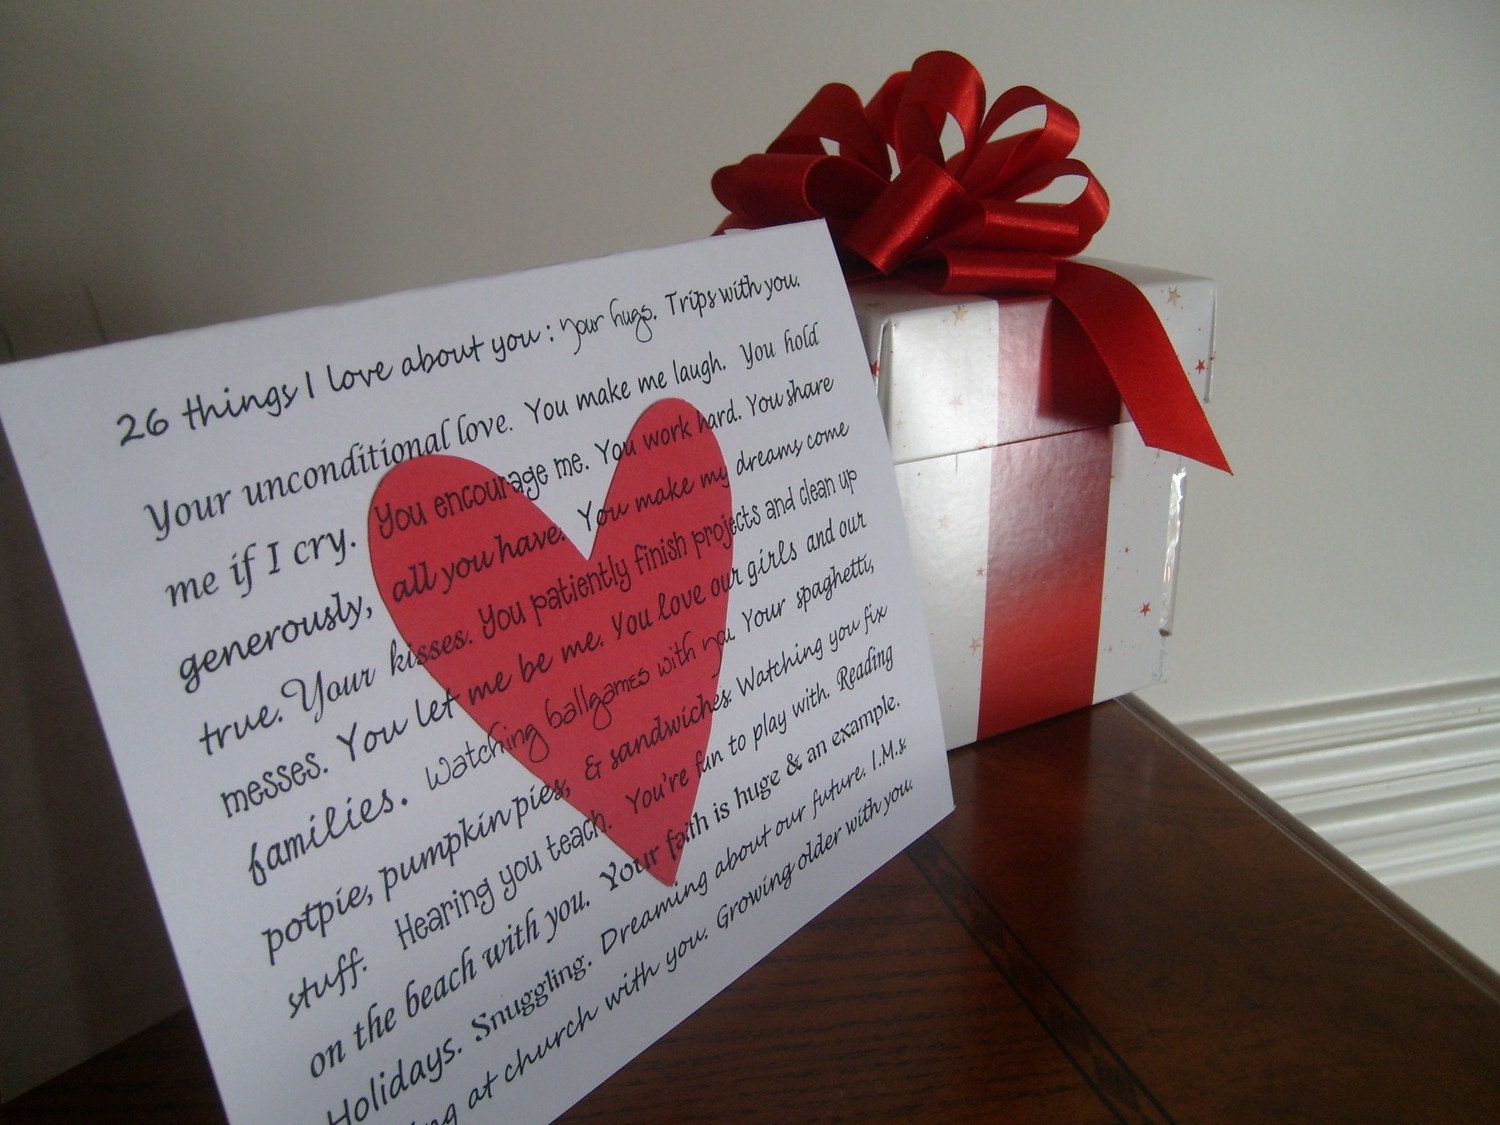 26 things I love about you : Your hugs. Trips with you.
Your unconditional love. You make me laugh. You hold
me if I cry. You encourage me. You work hard. You share
generously, all you have. You make my dreams come
true. Your kisses. You patiently finish projects and clean up
messes. You let me be me. You love our girls and our
families. Watching ballgames with you. Your spaghetti,
potpie, pumpkin pies, & sandwiches. Watching you fix
stuff. Hearing you teach. You're fun to play with. Reading
on the beach with you. Your faith is huge & an example.
Holidays. Snuggling. Dreaming about our future. I.M.s.
at church with you. Growing older with you.